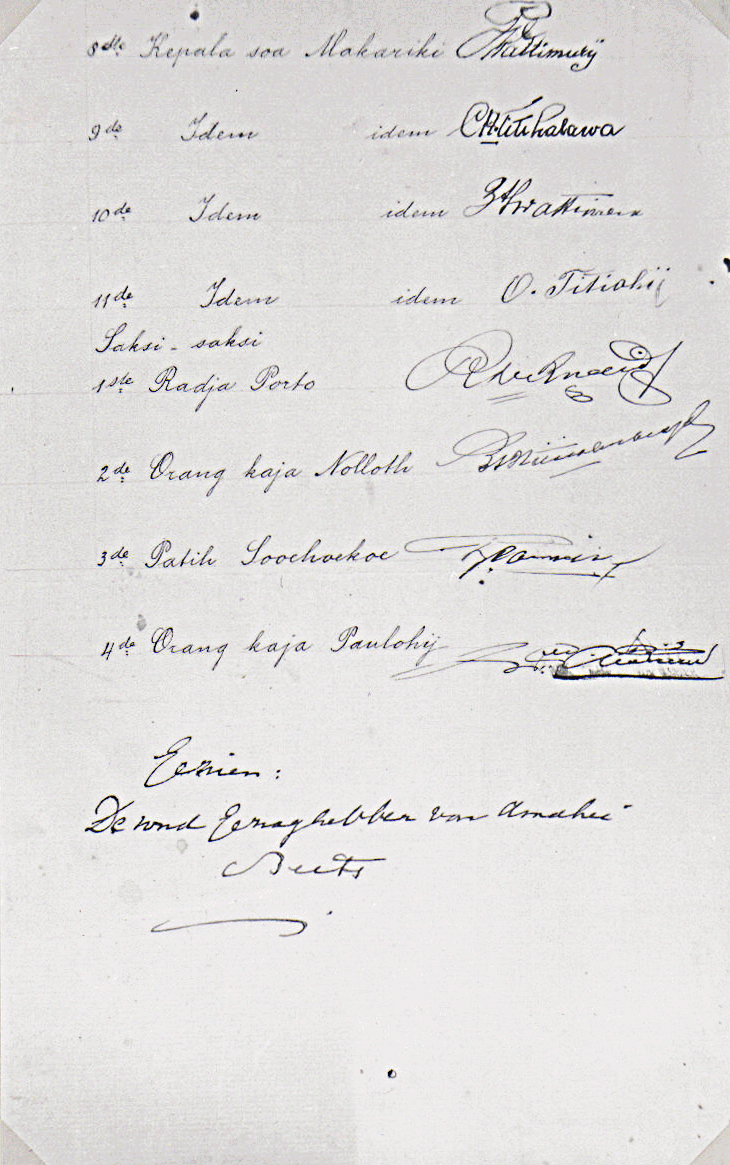 8ste Kepala soa Makariki Wattimurij
9de Idem idem CH Titihalawa
10de Idem idem Wattimena
11de Idem idem O. Titiahij
Saksi - saksi
1ste Radja Porto
2de Orang kaja Nolloth
3de Patih Soohoekoe
4de Orang kaja Paulohij
Gezien:
De wnd Gezaghebber van Amahei
Beets